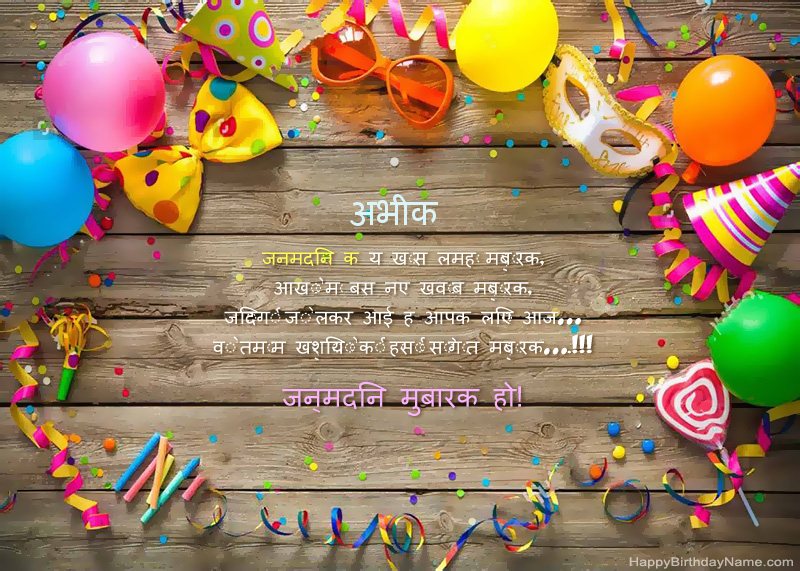 अभीक
जनमदिन क य खास लमहा मुबारक,
आखों में बसे नए ख्वाब मुबारक,
जिंदगी जो लेकर आई है आपके लिए आज...
वो तमाम खुशियों की हंसीं सौगात मुबारक...!!!
जन्मदिन मुबारक हो!
HappyBirthdayName.com